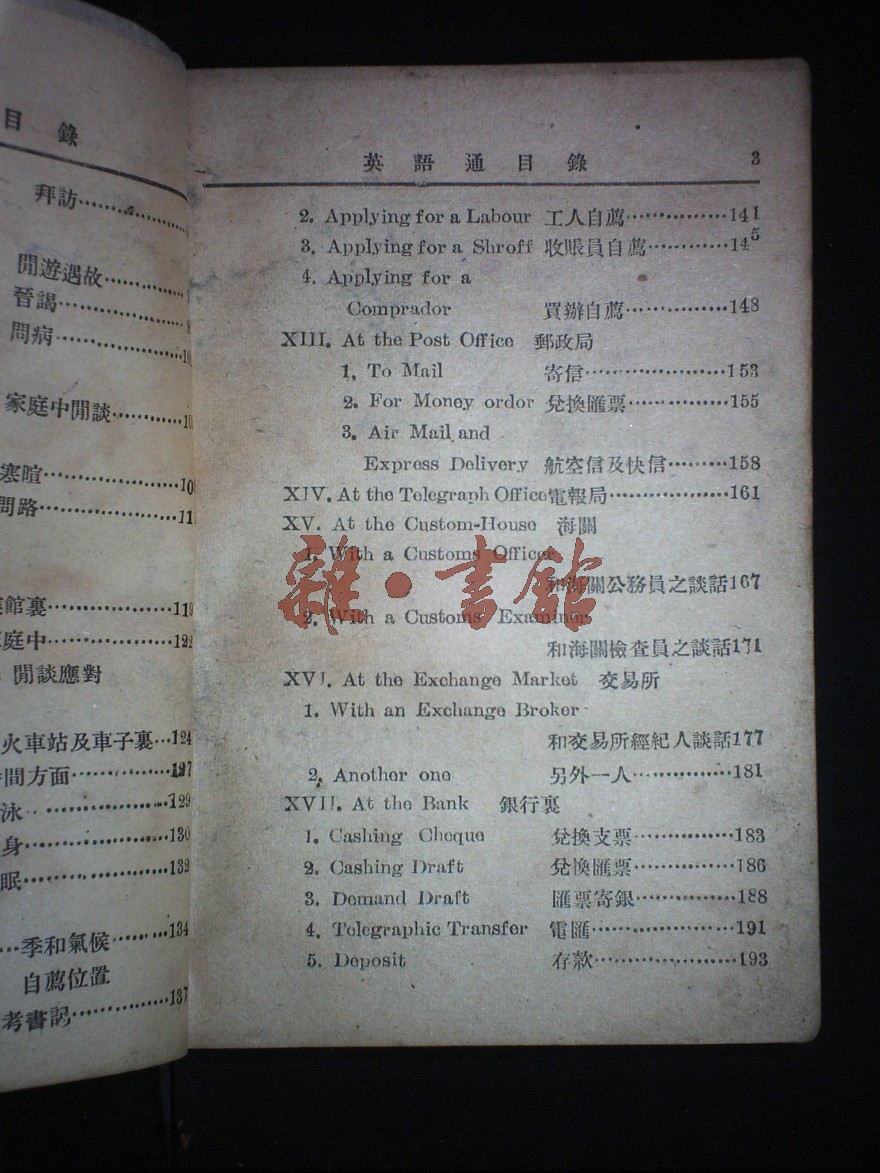 目錄
拜訪
閒遊遇故
晉謁
問病
家庭中閒談
寒暄
問路
館裏 119
庭中 122
閒談應對
火車站及車子裏 124
間方面 127
泳 129
身 130
眠 132
季和氣候 134
自薦位置
考書記 137
英語通目錄 3
2. Applying for a Labour 工人自薦 141
3. Applying for a Shroff 收賬員自薦 145
4. Applying for a
Comprador 買辦自薦 148
XIII. At the Post Office 郵政局
1. To Mail 寄信 153
2. For Money ordor 兌換匯票 155
3. Air Mail and
Express Delivery 航空信及快信 158
XIV. At the Telegraph Office 電報局 161
XV. At the Custom-House 海關
1. With a Customs Officer
和海關公務員之談話 167
2. With a Customs Examiner
和海關檢查員之談話 171
XVI. At the Exchange Market 交易所
1. With an Exchange Broker
和交易所經紀人談話 177
2. Another one 另外一人 181
XVII. At the Bank 銀行裏
1. Cashing Cheque 兌換支票 183
2. Cashing Draft 兌換匯票 186
3. Demand Draft 匯票寄銀 188
4. Telegraphic Transfer 電匯 191
5. Deposit 存款 193
雜·書館